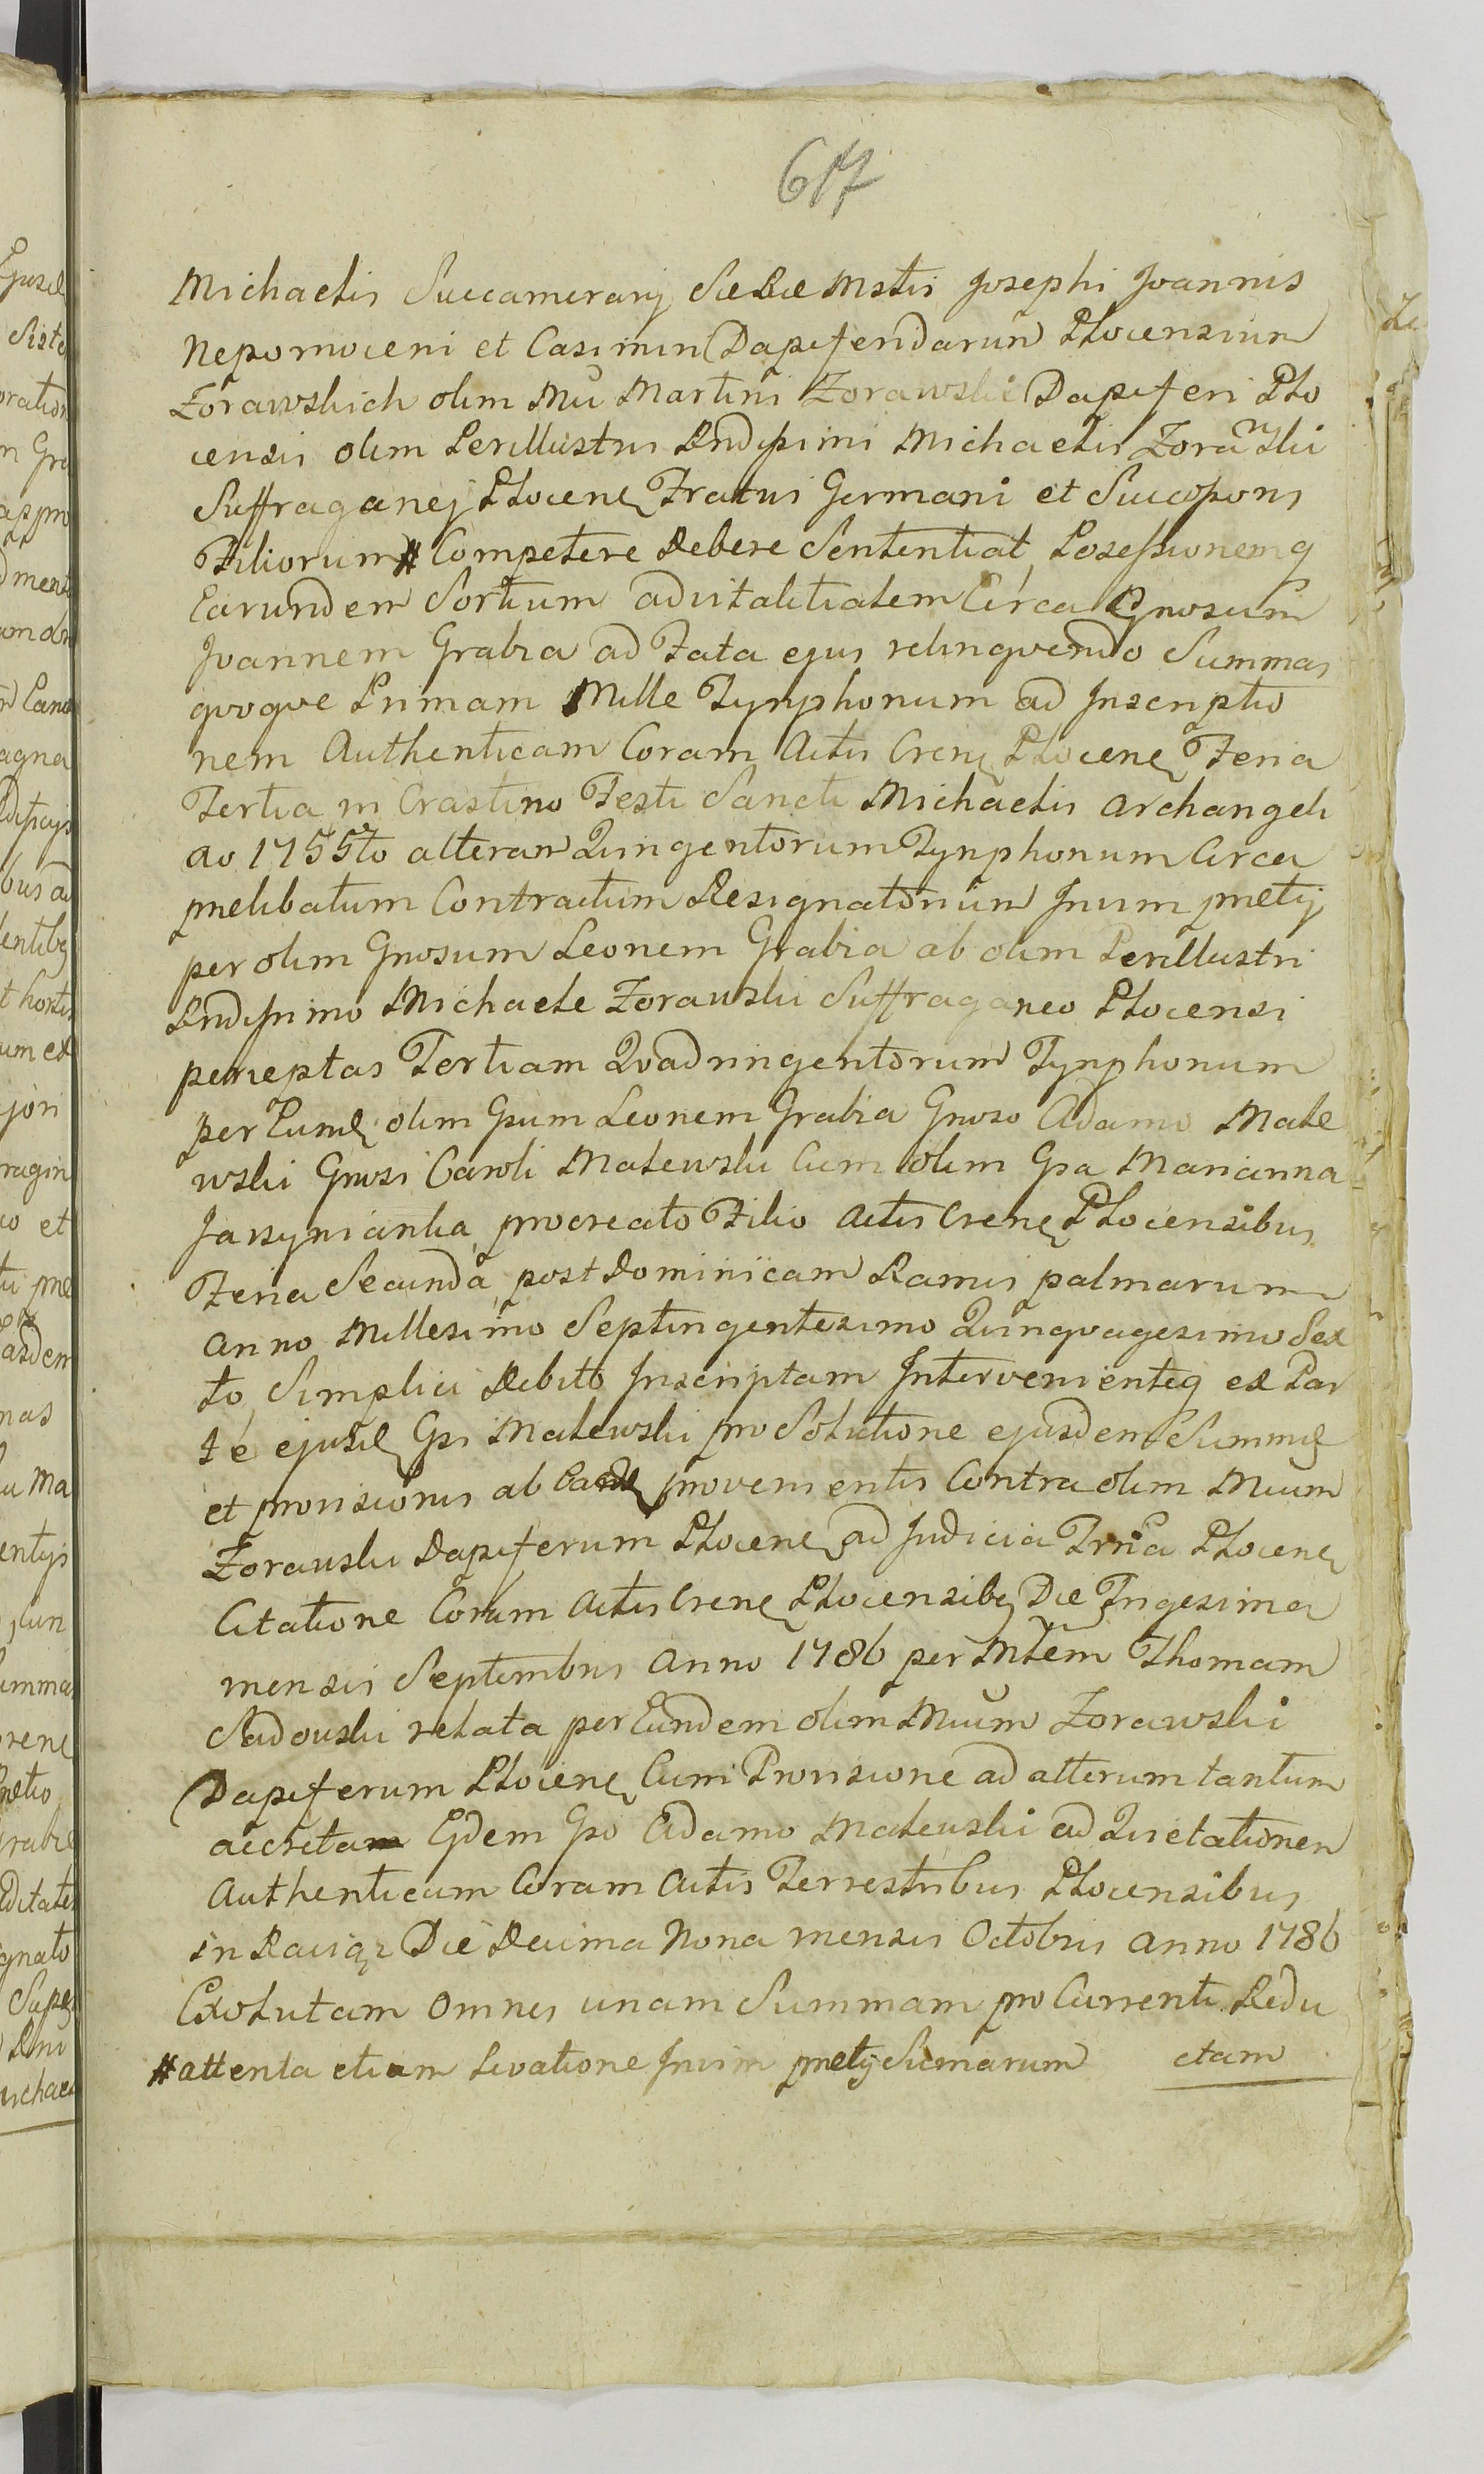 617
Michaelis Succamerarij SaeRae Mstis Josephi Joannis
Nepomoceni et Casimiri Dapiferidarum Plocensium
Zorawskich olim Mci Martini Zorawski Dapiferi Plo
censis olim Perillustris Rndissimi Michaelis Zorawski
Suffraganej Plocen Fratris Germani et Successoris
Filiorum # Competere Debere Sententiat, Possessionemq
Earundem Sortium advitalitialem Circa Gnosum
Joannem Grabia ad Fata ejus relinqvendo Summas
qvoqve Primam Mille Tynphonum ad Inscriptio
nem Authenticam Coram Actis Cren Plocen Feria
Tertia in Crastino Festi Sancti Michaelis Archangeli
Ao 1755to alteram Quingentorum Tynphonum Circa
prelibatum Contractum Resignatorium Inum pretij
per olim Gnosum Leonem Grabia ab olim Perillustri
Rndissimo Michaele Zorawski Suffraganeo Plocensi
perceptas Tertiam Qvadringentorum Tynphonum
per Eumd olim Gsum Leonem Grabia Gnoso Adamo Make
wski Gnosi Caroli Makewski Cum olim Gsa Marianna
Jarzynianka procreato Filio Actis Cren Plocensibus
Feria Secunda post Dominicam Ramis palmarum
Anno Millesimo Septingentesimo Quinqvagesimo Sex
to Simplici Debito Inscriptam Intervenienteq ex Par
te ejusd Gsi Makewski pro Solutione ejusdem Summae
et provisionis ab Eadem provenientis Contra olim Mcum
Zorawski Dapiferum Plocen ad Judicia Trria Plocen
Citatione Coram Actis Cren Plocensibq Die Trigesima
mensis Septembris Anno 1786 per Mtem Thomam
Sadowski relata per Eundem olim Mcum Zorawski
Dapiferum Plocen Cum Provisione ad alterum tantum
accreta Ejdem Gso Adamo Makewski ad Quietationem
Authenticam Coram Actis Terrestribus Plocensibus
in Raciąz Die Decima Nona mensis Octobris Anno 1786
Exolutam omnes unam Summam pro Currenti Redu
# attenta etiam Levatione Inum pretij Sumarum ctam